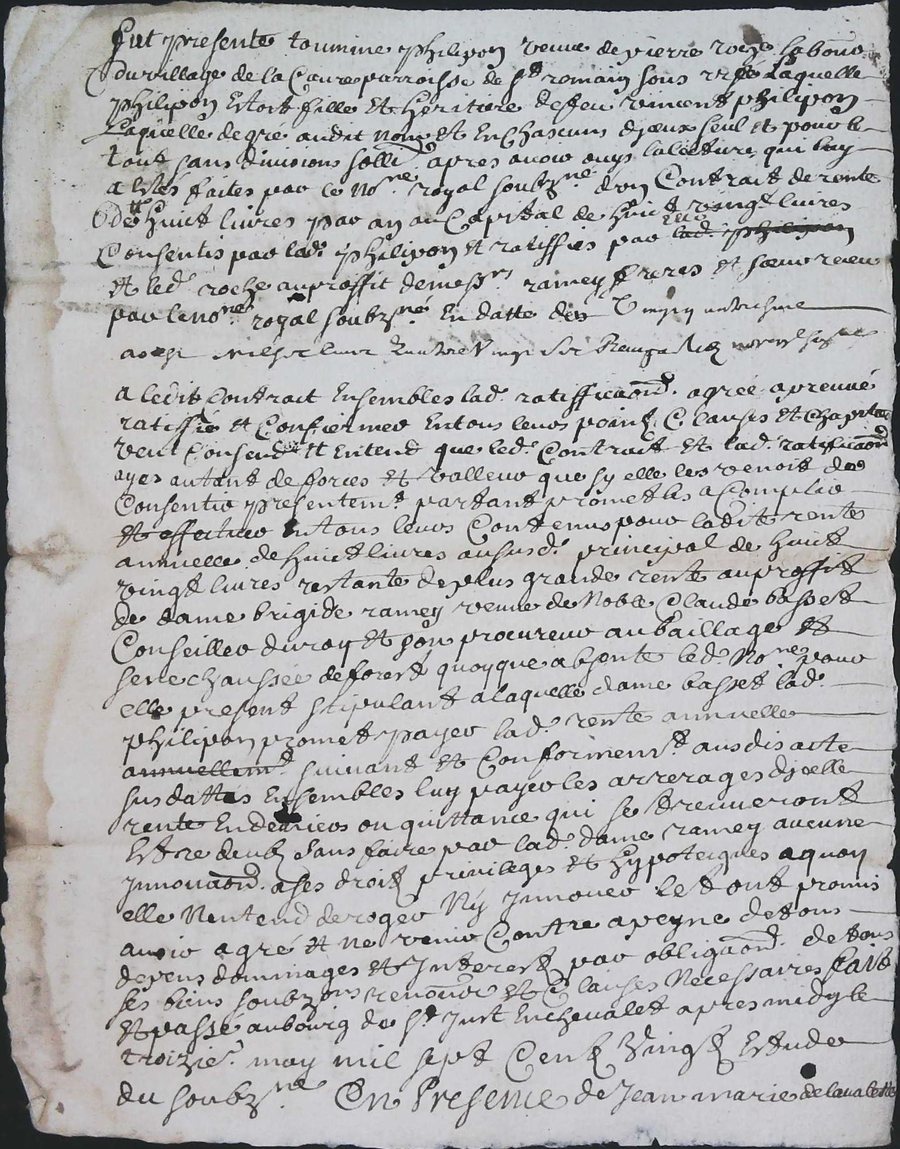 fut presente toumine philipon veuve de pierre roche labour
du village de la Cavre parroisse de st romain sous urfé Laquelle
philipon Estoit fille Et heritiere de feu vincent philipon
Laquelle de gré audit nom Et En chascung d'jceux seul Et pour le
tout sans divisions sollid. apres avoir ouys la lecture qui luy
a Estés faites par le Nore royal soubzne d'un Contrait de rente
de huict livres par an au Capital de huict vingt livres
Consentis par lad. philipon Et ratiffiés par lad. philipon
Et led. roche au proffit de messrs ramey freres Et sœur receu
par le nore royal soubzné En datte des
a ledit Contrait Ensembles lad. ratifficaon. agréé apreuvé
ratiffié Et Confiermer En tous leurs points Clauses Et chapitres
veut Consend Et Entend que led. Contrait Et lad. ratifficaon
ayes autant de forces Et valleur que sy elle les venoit de
Consentir presentemt partant promet les a Complir
Et effectuer En tous leurs Contenus pour ladite rente
annuelle de huict livres au susd. principal de huict
vingt livres restante de plus grande rente au proffit
de dame brigide ramey veuve de Noble Claude basset
Conseiller du roy Et son procureur au baillage Et
senechaussée de forest quoyque absente led. Nore pour
elle present stipulant a laquelle dame basset lad.
philipon promet payer lad. rente annuelle
annuellemt suivant Et Conformemt. ausdis acte
sus dattés Ensembles luy payer les arrerages d'jcelle
rente En deniers ou quittance qui se treuveront
Estre deubz sans faire par lad. dame ramey aucune
jnnovaon. a ses droits privileges Et hypoteques a quoy
elle N'entend deroger Ny jnnover le tout promis
avoir agre Et ne venir Contre a peyne de tous
depens dommages Et jnterest par obligaon. de tous
ses biens soubzons renonces Et Clauses Necessaires fait
Et passé au bourg de st just En chevalet apres midy le
troizie. may mil sept Cents vingts Estude
du soubzne. En Presence de Jean marie de lavalette